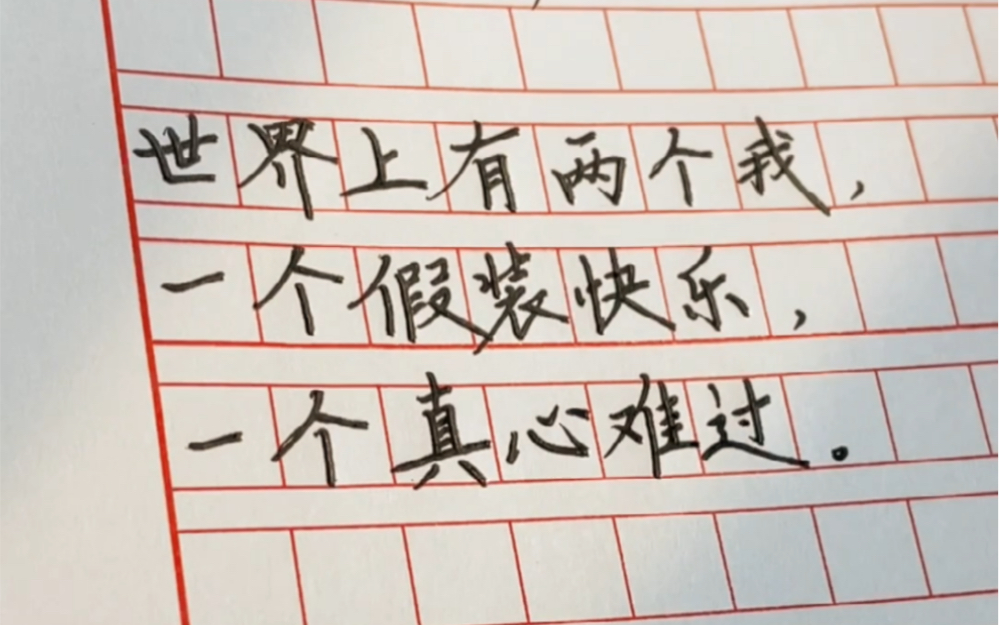 世界上有两个我，
一个假装快乐，
一个真心难过.